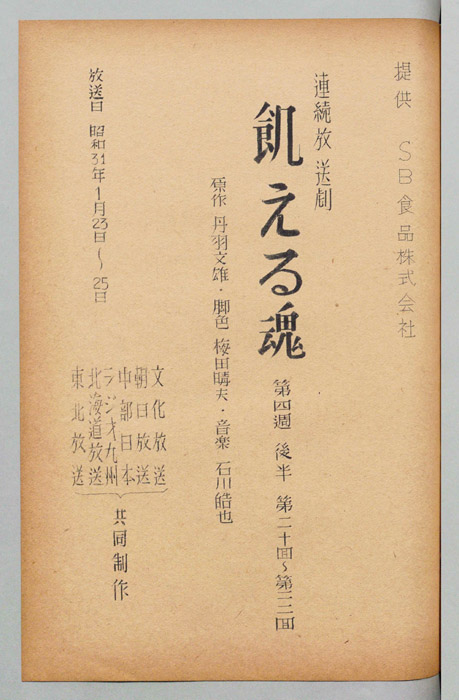 提供 SB食品株式会社
連続放送劇
飢える魂
第四週 後半 第二十回~第二二回
原作 丹羽文雄・脚色 梅田晴夫・音楽 石川皓也
放送日 昭和31年1月23日~25日
文化放送
朝日放送
中部日本
ラジオ九州
北海道放送
東北放送
共同制作